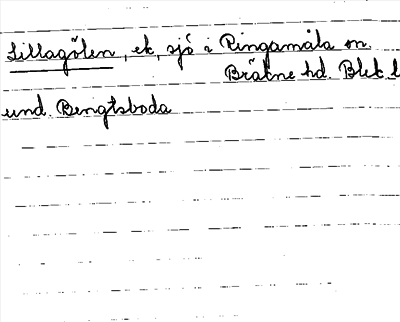 Lillagölen, ek, sjö i Ringamåla sn.
Bräkne hd. Blek. l
und. Bengtsboda